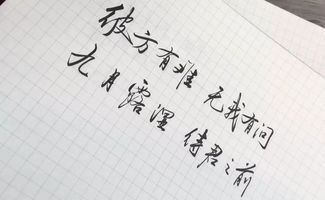 彼方有谁 无我有问
九月露湿 待君之前